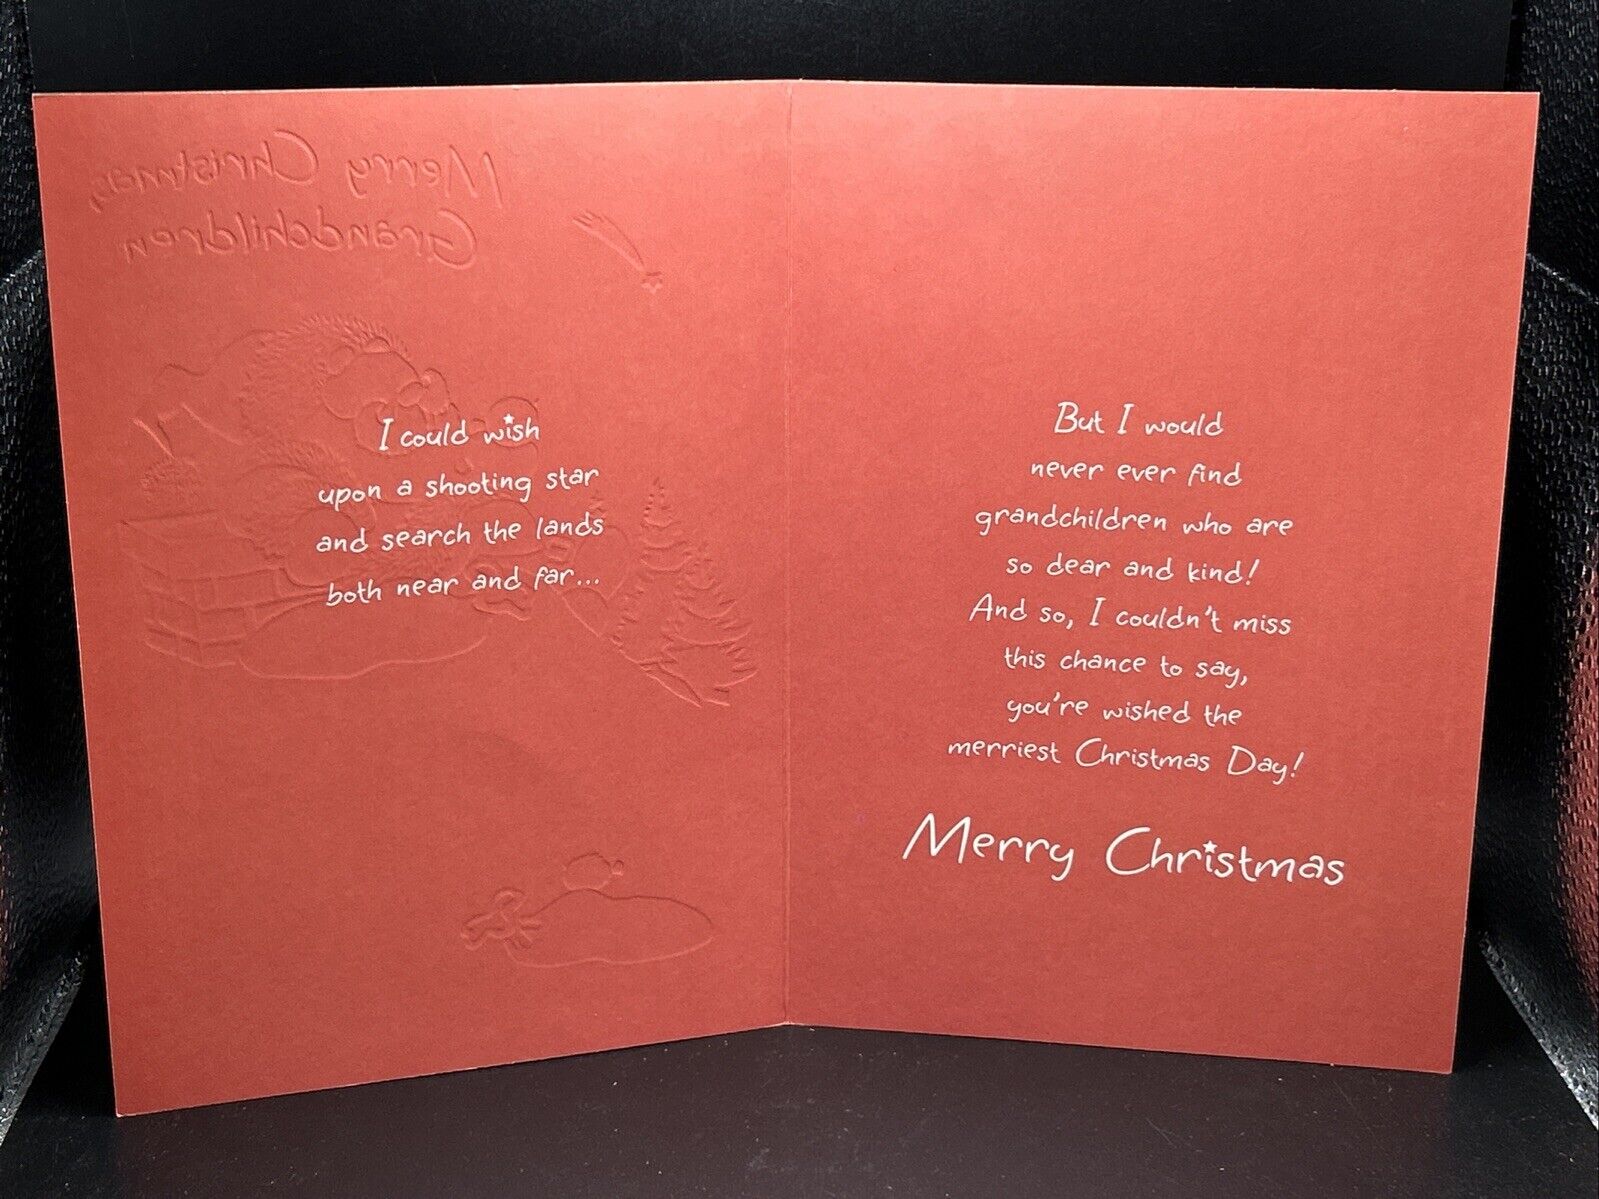 Merry Christmas,
Grandchildren
I could wish
upon a shooting star
and search the lands
both near and far...
But I would
never ever find
grandchildren who are
so dear and kind!
And so, I couldn't miss
this chance to say,
you're wished the
merriest Christmas Day!
Merry Christmas